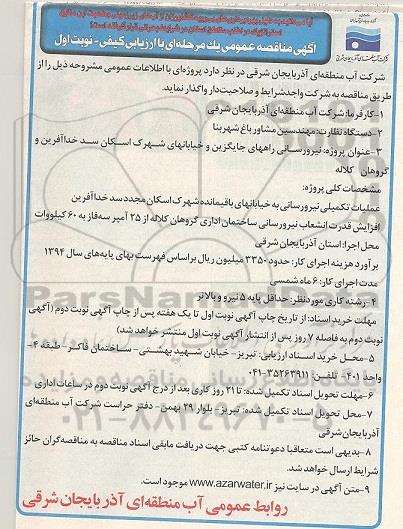 آگهی مناقصه عمومی یک مرحله‌ای با ارزیابی کیفی - نوبت اول
شرکت آب منطقه‌ای آذربایجان شرقی در نظر دارد پروژه‌ای با اطلاعات عمومی مشروحه ذیل را از
طریق مناقصه به شرکت واجد شرایط و صلاحیت‌دار واگذار نماید.
۱-کارفرما: شرکت آب منطقه‌ای آذربایجان شرقی
۲-دستگاه نظارت: مهندسین مشاور باغ شهر بنا
۳-عنوان پروژه: نیرورسانی راههای جایگزین و خیابانهای شهرک اسکان سد خداآفرین و
گروهان کلاله
مشخصات کلی پروژه:
عملیات تکمیلی نیرورسانی به خیابانهای باقیمانده شهرک اسکان مجدد سد خداآفرین
افزایش قدرت انشعاب نیرورسانی ساختمان اداری گروهان کلاله از ۲۵ آمپر سه‌فاز به ۶۰ کیلووات
محل اجرا: استان آذربایجان شرقی
برآورد هزینه اجرای کار: حدود ۳۳۵۰ میلیون ریال براساس فهرست بهای پایه‌های سال ۱۳۹۴
مدت اجرای کار: ۶ ماه شمسی
۴-رشته کاری موردنظر: حداقل پایه ۵ نیرو و بالاتر
مهلت خرید اسناد: از تاریخ چاپ آگهی نوبت اول تا یک هفته پس از چاپ آگهی نوبت دوم (آگهی
نوبت دوم به فاصله ۷ روز پس از انتشار آگهی نوبت اول منتشر خواهد شد)
۵-محل خرید اسناد ارزیابی: تبریز- خیابان شهید بهشتی- ساختمان فاکر- طبقه ۴-
واحد ۴۰۱- تلفن: ۳۵۲۶۳۹۱۱-۰۴۱
۶-مهلت تحویل اسناد تکمیل شده: تا ۲۱ روز کاری بعد از درج آگهی نوبت دوم در ساعات اداری
۷-محل تحویل اسناد تکمیل شده: تبریز- بلوار ۲۹ بهمن- دفتر حراست شرکت آب منطقه‌ای
آذربایجان‌شرقی
۸-بدیهی است متعاقبا دعوتنامه کتبی جهت دریافت مابقی اسناد مناقصه به مناقصه‌گران حائز
شرایط ارسال خواهد شد.
۹-متن آگهی در سایت نیز www.azarwater.ir موجود است.
روابط عمومی آب منطقه‌ای آذربایجان شرقی